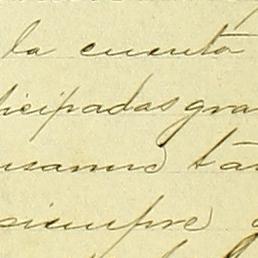 la cuenta
ticipadas gra
usarme tan
siempre